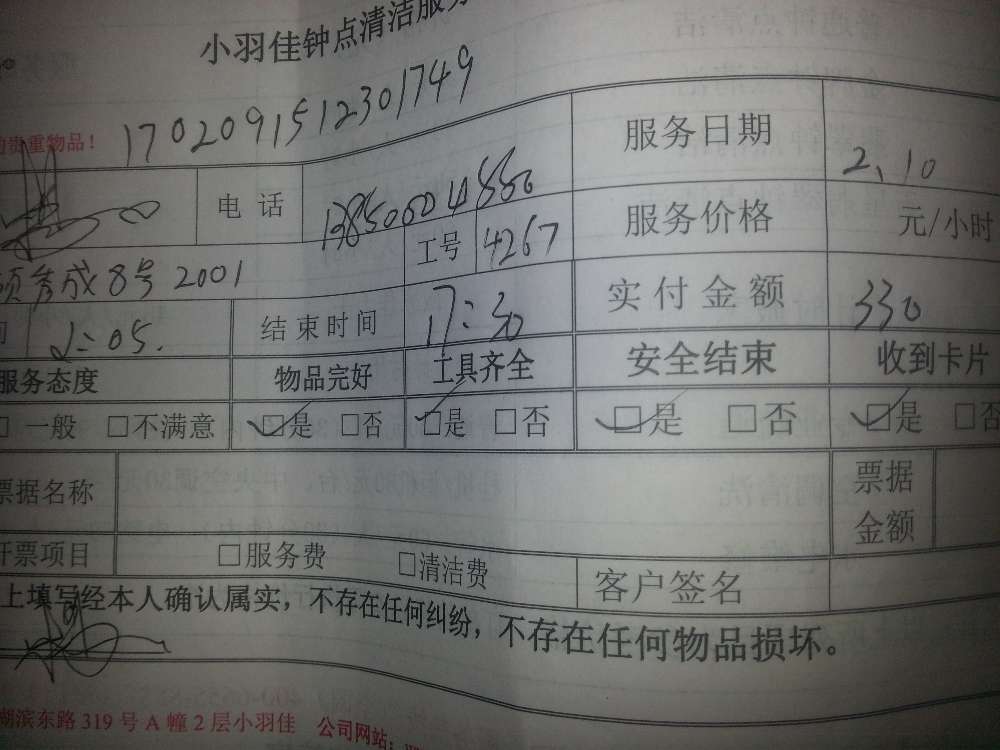 小羽佳钟点清洁服务
1702091512301749
贵重物品！
电 话 服务日期 2、10
工号 4267 服务价格 元/小时
秀成8号2001
2:05. 结束时间 17:30 实付金额 330
服务态度 物品完好 工具齐全 安全结束 收到卡片
□一般 □不满意 □是 □否 □是 □否 □是 □否 □是 □否
票据名称 票据金额
开票项目 □服务费 □清洁费 客户签名
上填写经本人确认属实，不存在任何纠纷，不存在任何物品损坏。
湖滨东路 319 号 A 幢 2 层小羽佳 公司网站：